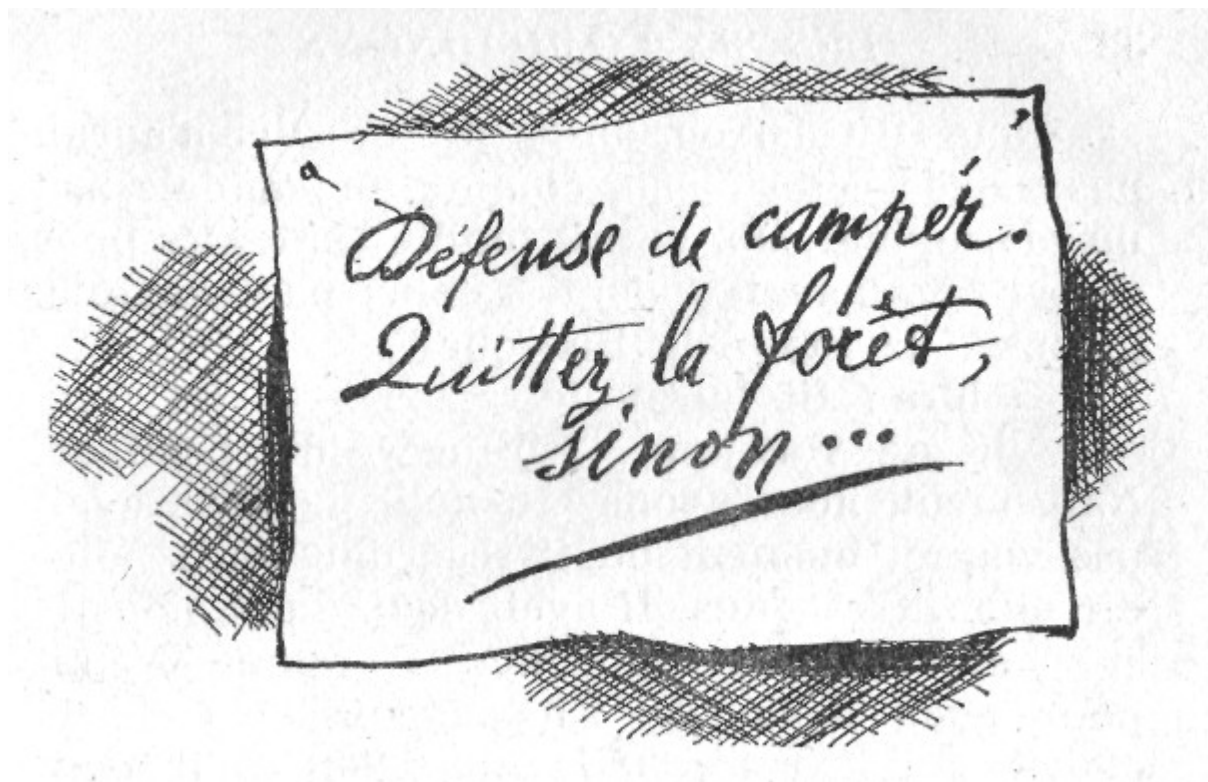 Défense de camper.
Quittez la forêt,
sinon...